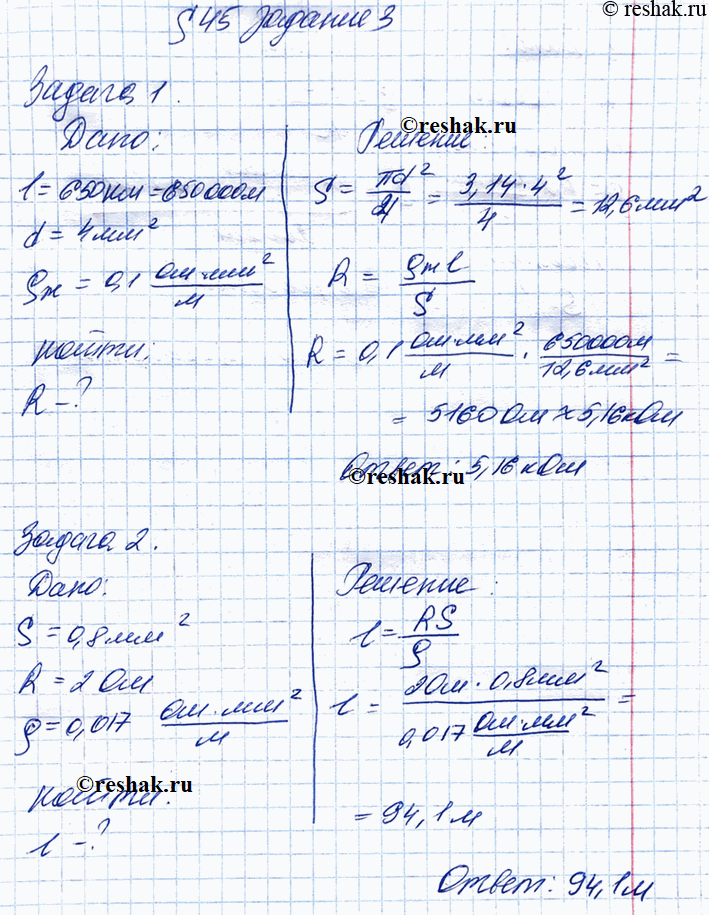 ©reshak.ru
§45 Задание 3
Задача 1.
Дано:
l = 650км = 650000м
d = 4мм²
ρж = 0,1 Ом·мм²/м
Найти:
R - ?
©reshak.ru
Решение:
S = πd²/4 = 3,14·4²/4 = 12,6мм²
R = ρж l/S
R = 0,1 Ом·мм²/м · 650000м/12,6мм² =
= 5160 Ом ≈ 5,16кОм
Ответ: 5,16 кОм
©reshak.ru
Задача 2.
Дано:
S = 0,8мм²
R = 2 Ом
ρ = 0,017 Ом·мм²/м
©reshak.ru
Найти:
l - ?
Решение:
l = RS/ρ
l = 2Ом · 0,8мм²/0,017 Ом·мм²/м =
= 94,1м
Ответ: 94,1м